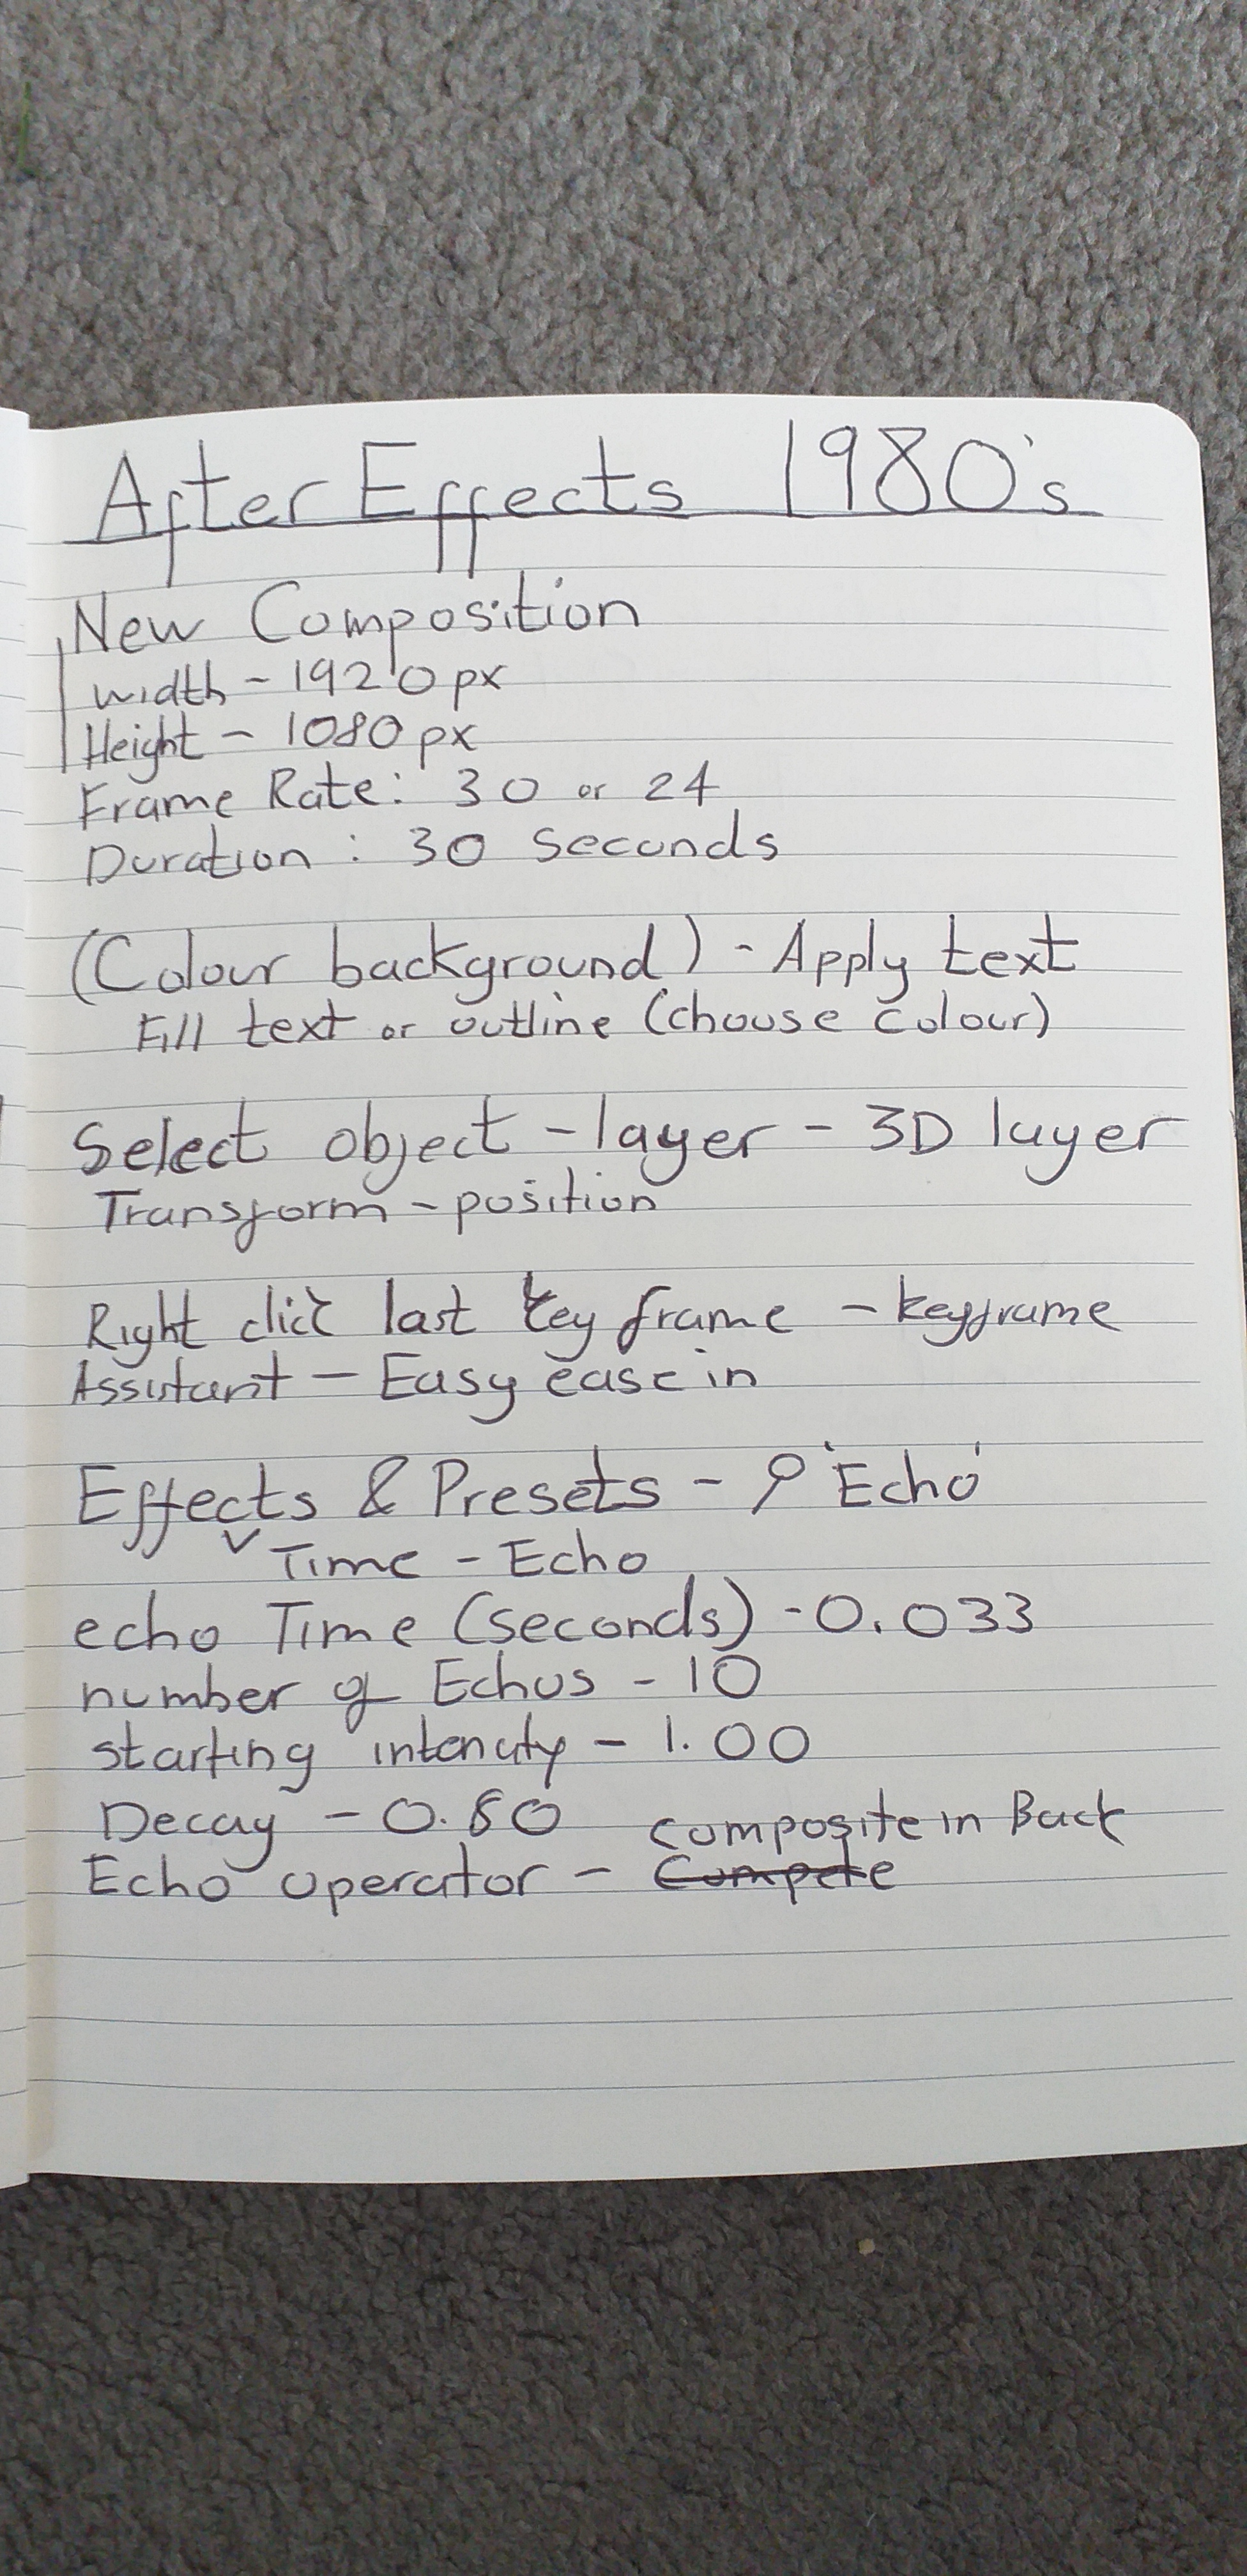 After Effects 1980's
New Composition
width - 1920px
Height - 1080px
Frame Rate: 30 or 24
Duration : 30 seconds
(Colour background) - Apply text
Fill text or outline (choose colour)
Select object - layer - 3D layer
Transform - position
Right click last key frame - keyframe
Assistant - Easy ease in
Effects & Presets - 'Echo'
Time - Echo
echo Time (seconds) -0.033
number of Echos - 10
starting intencity - 1.00
Decay - 0.80
composite in Back
Echo operator - Compete